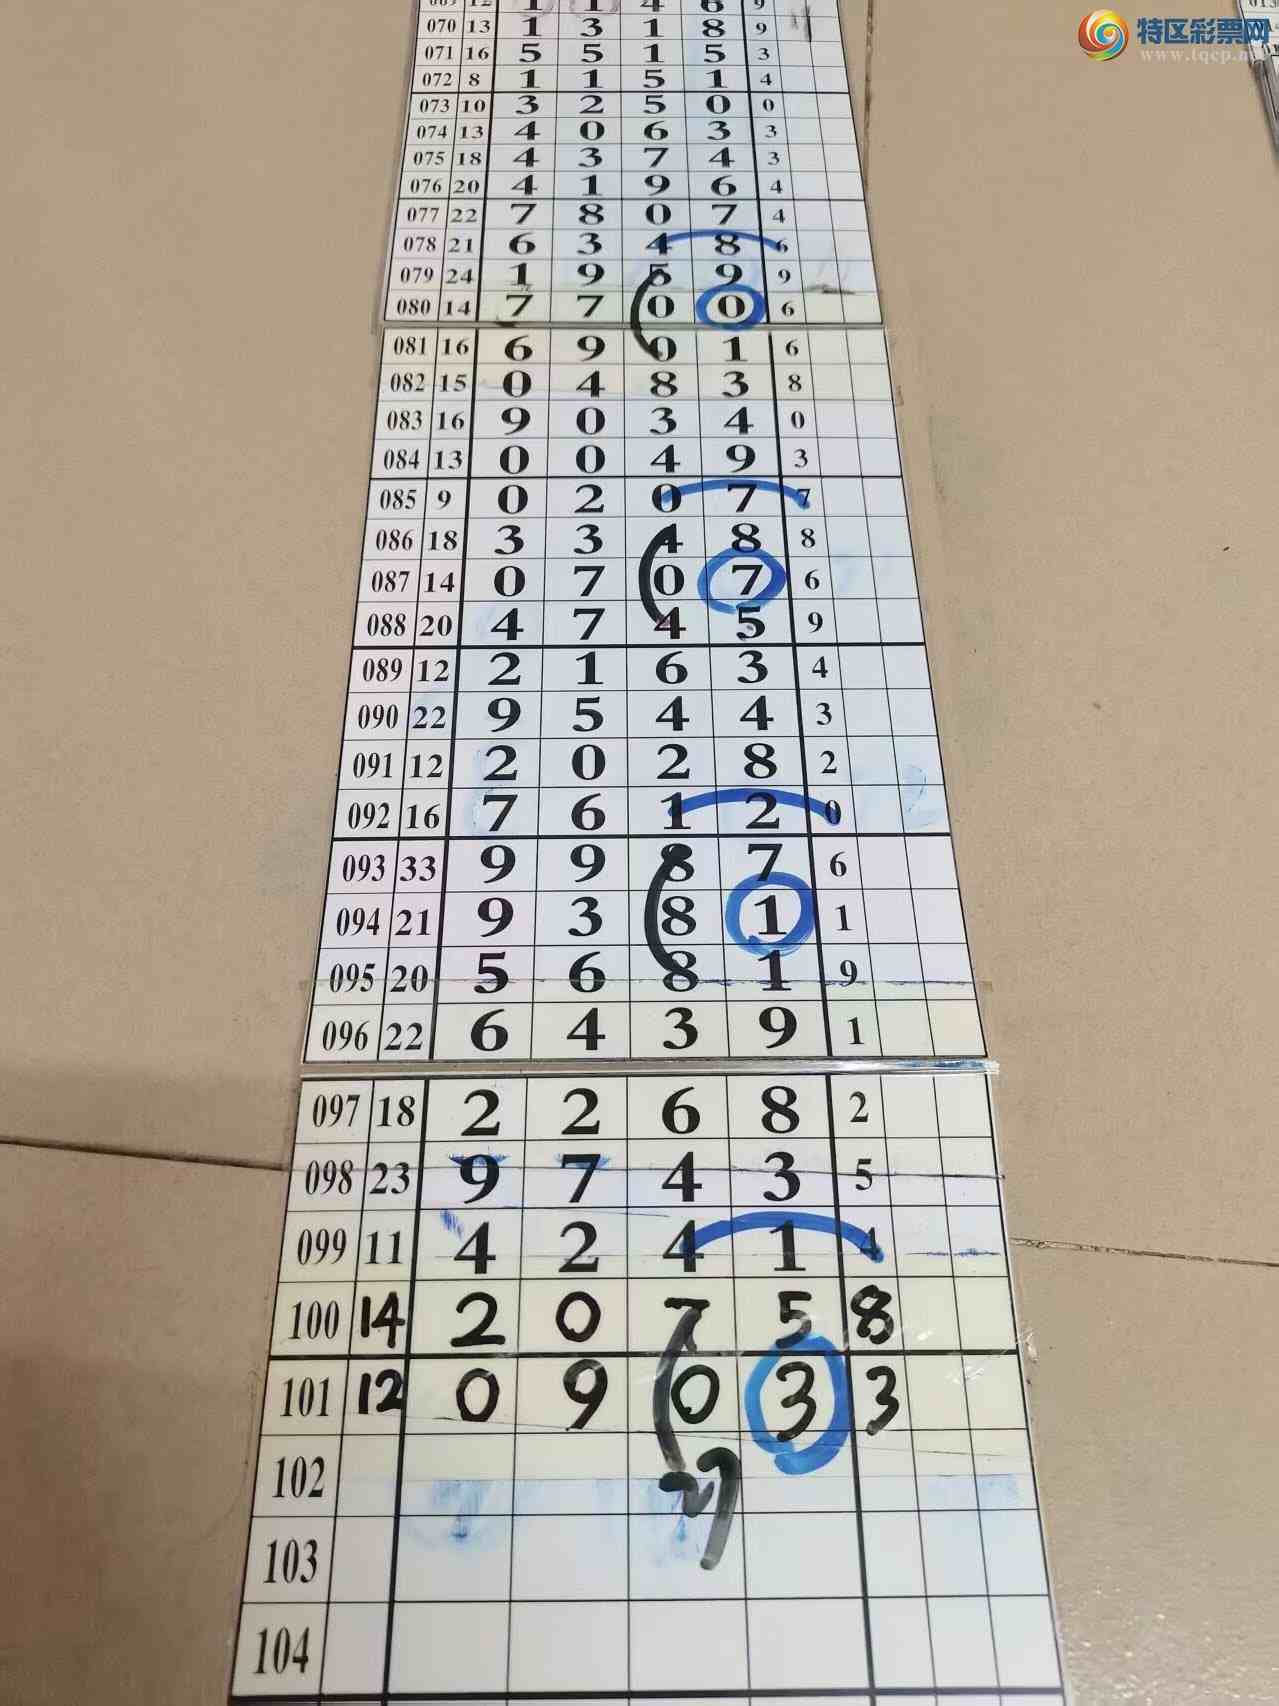 特区彩票网
www.tqcp.net
070 13 1 3 1 8 9
071 16 5 5 1 5 3
072 8 1 1 5 1 4
073 10 3 2 5 0 0
074 13 4 0 6 3 3
075 18 4 3 7 4 3
076 20 4 1 9 6 4
077 22 7 8 0 7 4
078 21 6 3 4 8 6
079 24 1 9 5 9 9
080 14 7 7 0 0 6
081 16 6 9 0 1 6
082 15 0 4 8 3 8
083 16 9 0 3 4 0
084 13 0 0 4 9 3
085 9 0 2 0 7 7
086 18 3 3 4 8 8
087 14 0 7 0 7 6
088 20 4 7 4 5 9
089 12 2 1 6 3 4
090 22 9 5 4 4 3
091 12 2 0 2 8 2
092 16 7 6 1 2 0
093 33 9 9 8 7 6
094 21 9 3 8 1 1
095 20 5 6 8 1 9
096 22 6 4 3 9 1
097 18 2 2 6 8 2
098 23 9 7 4 3 5
099 11 4 2 4 1 4
100 14 2 0 7 5 8
101 12 0 9 0 3 3
102 27
103
104